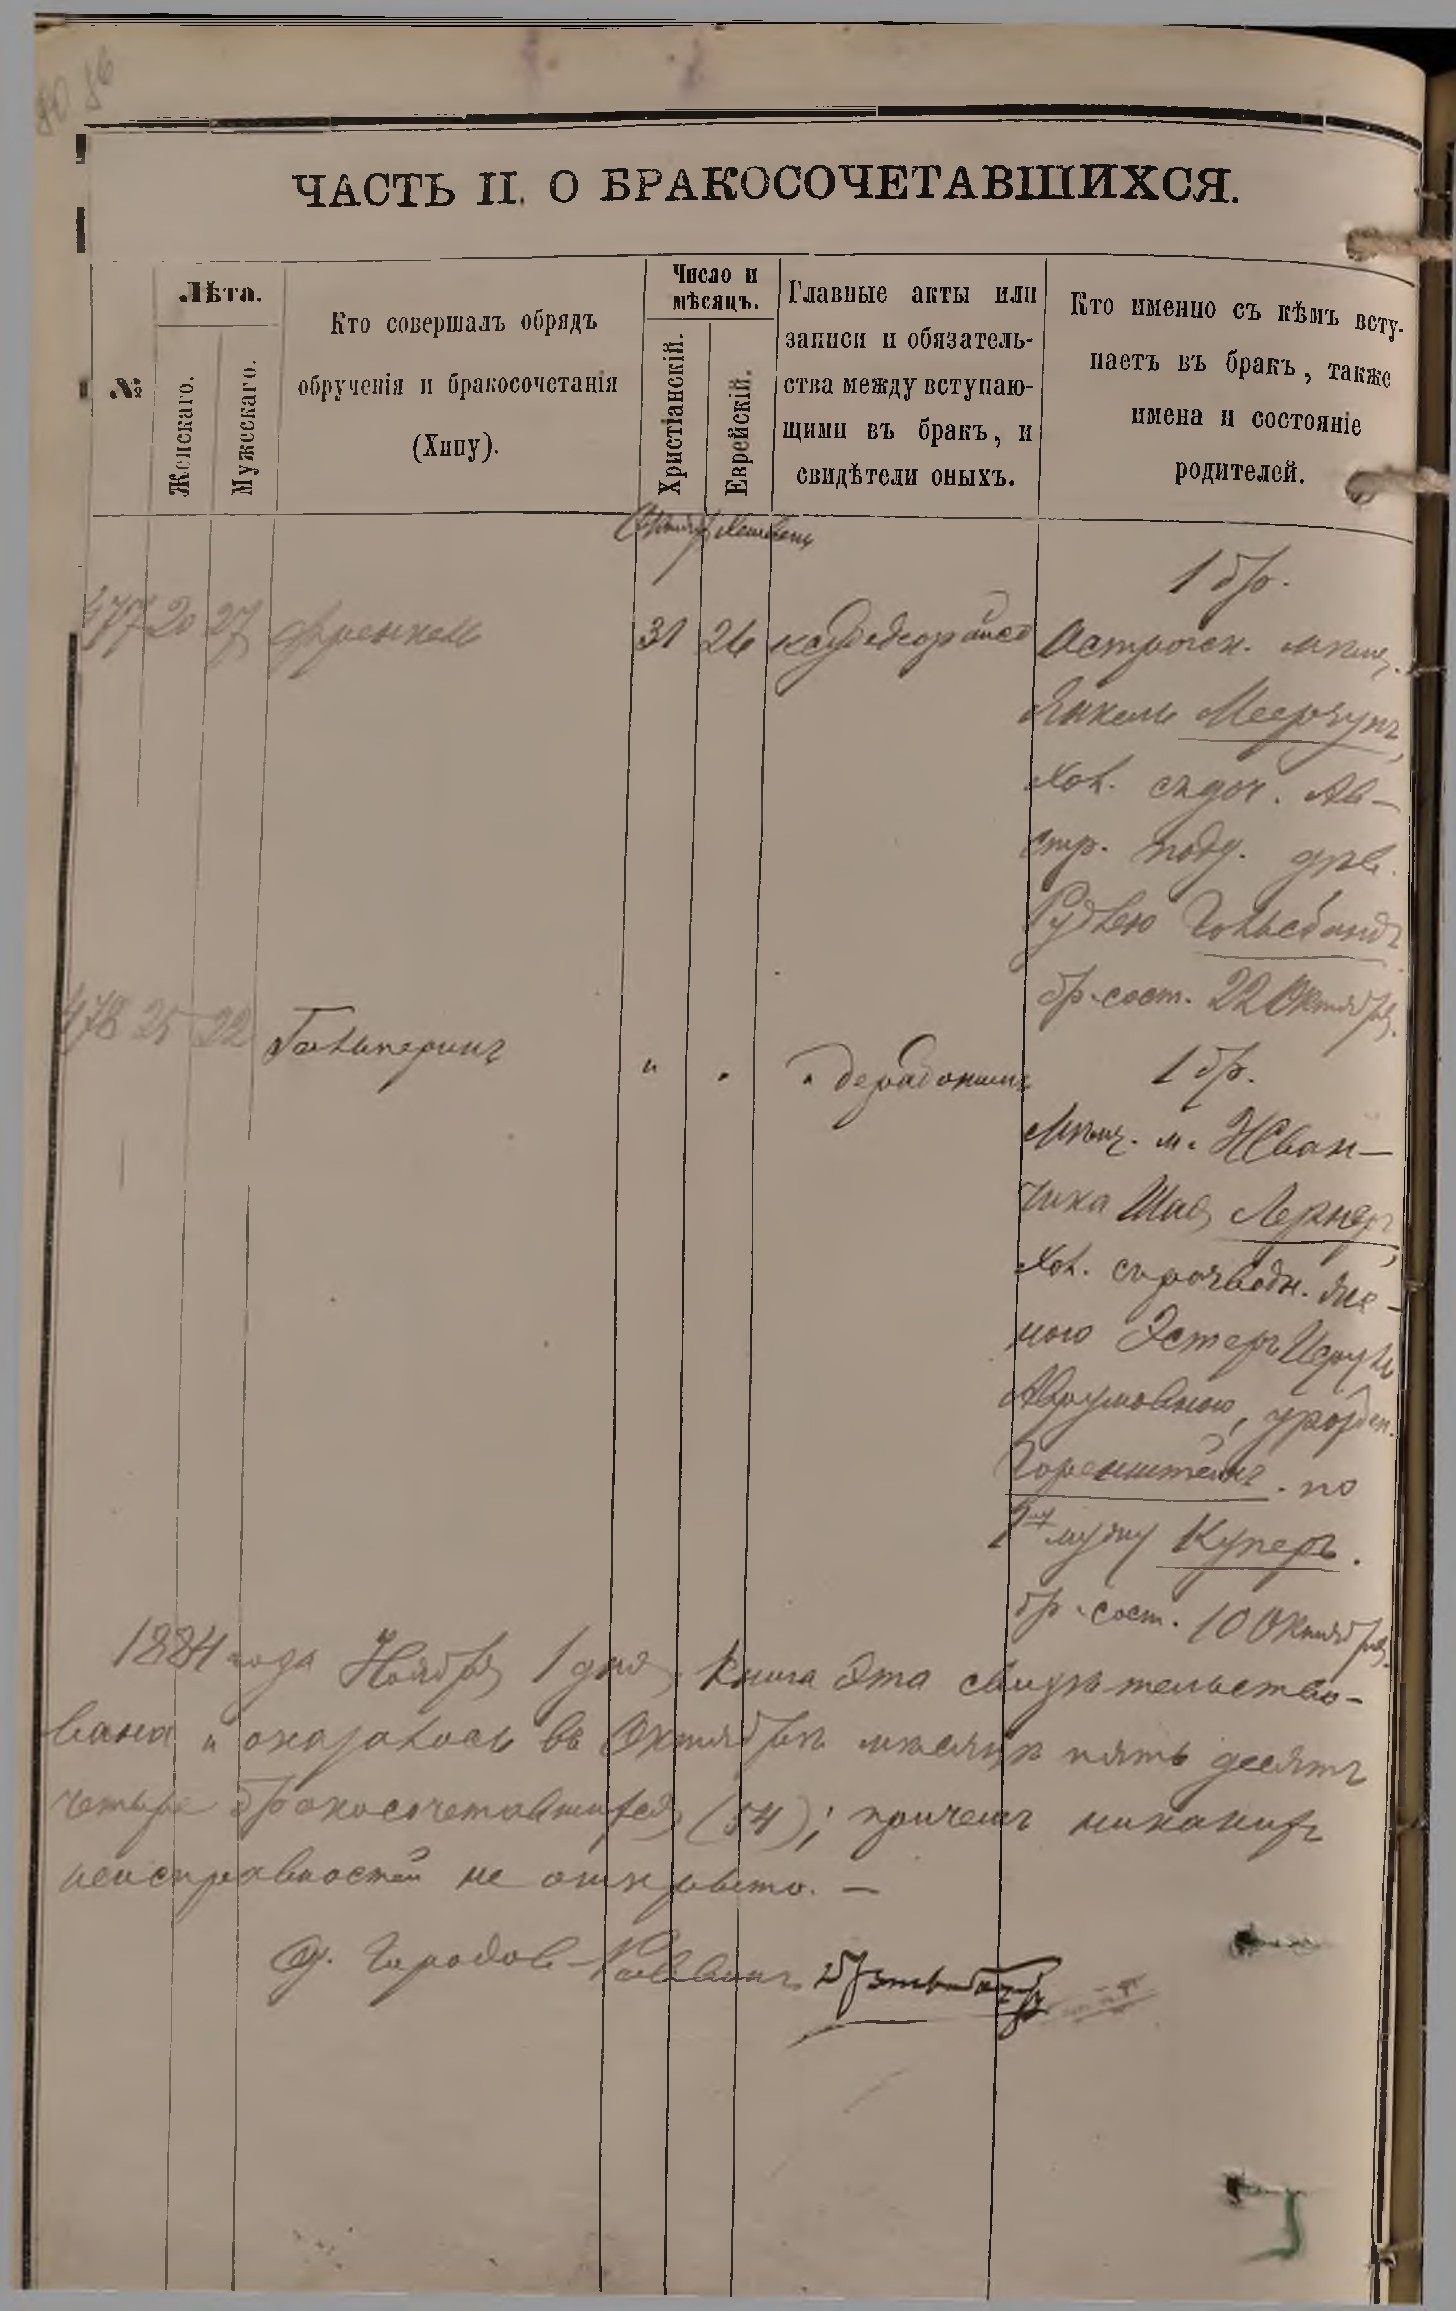 80 86
ЧАСТЬ II. О БРАКОСОЧЕТАВШИХСЯ.
№
Лѣта.
Женскаго.
Мужескаго.
Кто совершалъ обрядъ
обрученія и бракосочетанія
(Хипу).
Число и
мѣсяцъ.
Христіанскій.
Еврейскій.
Главные акты или
записи и обязатель-
ства между вступаю-
щими въ бракъ, и
свидѣтели оныхъ.
Кто именно съ кѣмъ всту-
паетъ въ бракъ, также
имена и состояніе
родителей.
Октябр. Хешвень
1 бр.
477 20 27 Френкель 31 24
Острогск. мѣщ.
Янкель Меерчукъ,
хол. съ доч. Ав-
стр. подд. дѣв.
Гольсбандъ
бр. сост. 22 Октября.
478 25 22 Гальперинъ " "
1 бр.
Мѣщ. м. Жван-
чика Шая Лернеръ,
хол. съ розводн. же-
ною Эстеръ
Аврумовною, урожден.
Горенштейнъ. по
1му мужу Куперъ.
бр. сост. 10 Октября.
1884 года Ноября 1 дня, книга эта свидѣтельство-
вана и оказалось въ Октябрѣ мѣсяцѣ пять десятъ
четыре бракосочетавшихся (54); причемъ никакихъ
неисправностей не открыто. —
Городов. Раввинъ